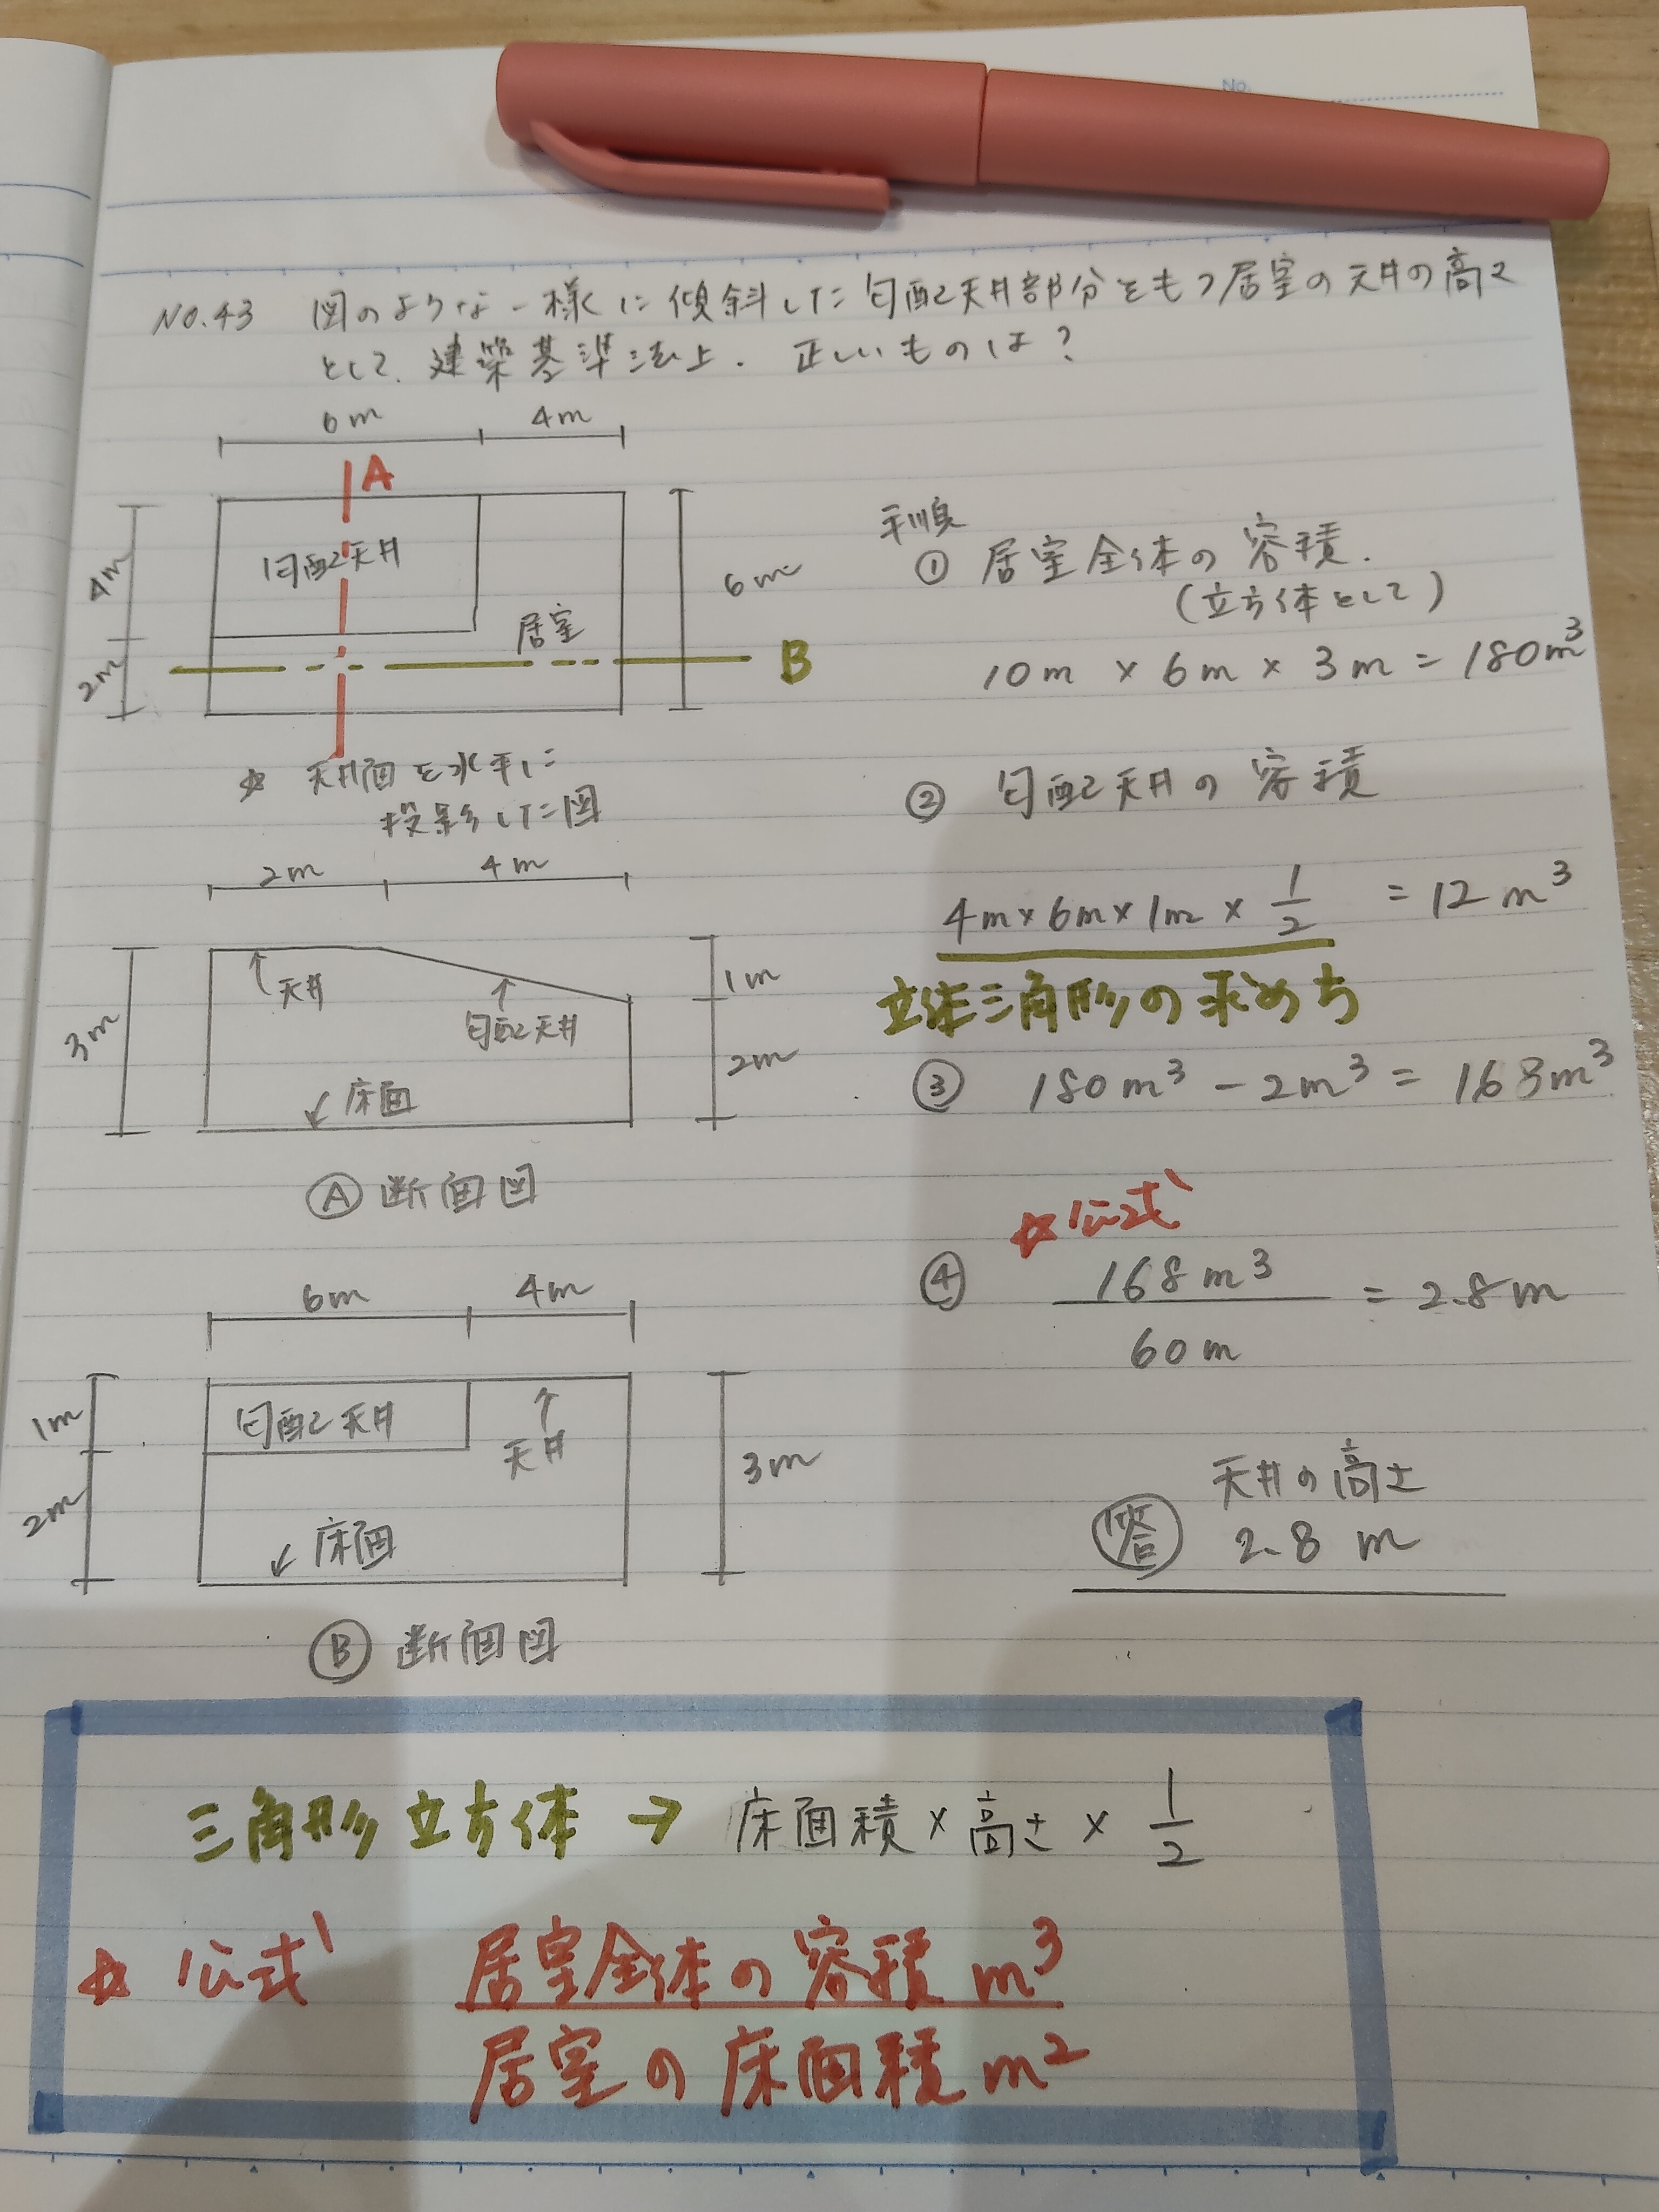 No.
NO.43 図のような一様に傾斜した勾配天井部分をもつ居室の天井の高さ
として、建築基準法上、正しいものは？
6m 4m
A
4m
勾配天井
6m
居室
2m
B
☆ 天井面を水平に
投影した図
2m 4m
天井
勾配天井
1m
3m
2m
床面
Ⓐ 断面図
6m 4m
1m
勾配天井
天井
3m
2m
床面
Ⓑ 断面図
手順
① 居室全体の容積.
(立方体として)
10m × 6m × 3m = 180m³
② 勾配天井の容積
4m×6m×1m × 1/2 = 12m³
立体三角形の求め方
③ 180m³ - 2m³ = 168m³
☆公式
④ 168m³/60m = 2.8m
答 天井の高さ
2.8 m
三角形立方体 → 床面積 × 高さ × 1/2
☆ 公式 居室全体の容積 m³
居室の床面積 m²